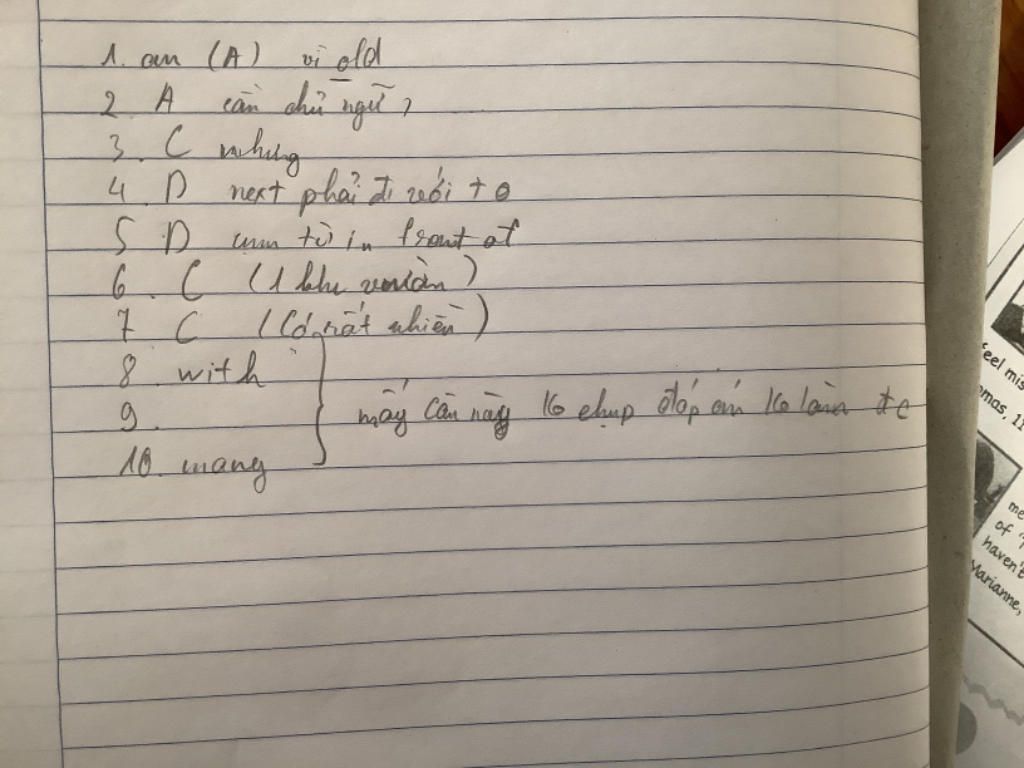 1. an (A) vì old
2 A cần chủ ngữ,
3. C nhưng
4. D next phải đi với to
5 D cụm từ in front of
6. C (1 khu vườn)
7 C (Có rất nhiều)
8. with
mấy câu này ko chụp đáp án ko làm đc
9.
10. many
feel mis
omas, 11
me
of
haven't
Marianne,